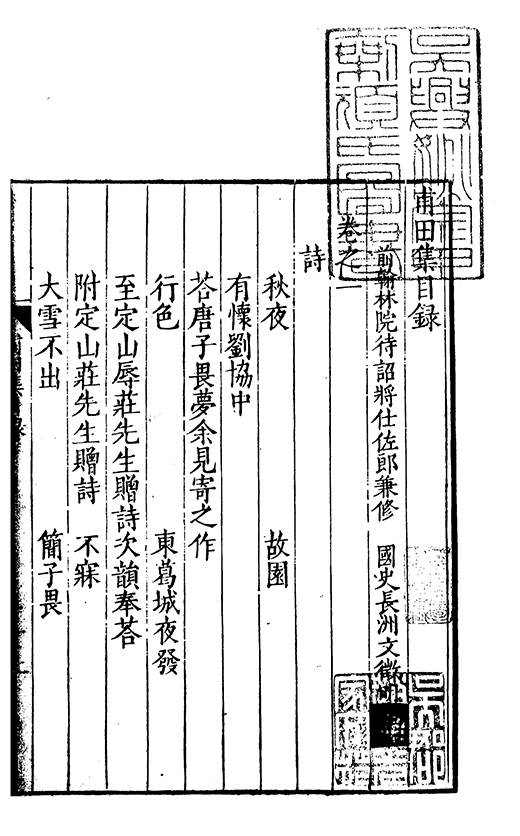 甫田集目録
前翰林院待詔將仕佐郎兼修 國史長洲文徵明
卷之一
詩
秋夜 故園
有懷劉協中
荅唐子畏夢余見寄之作
行色 東葛城夜發
至定山辱莊先生贈詩次韻奉荅
附定山莊先生贈詩 不寐
大雪不出 簡子畏